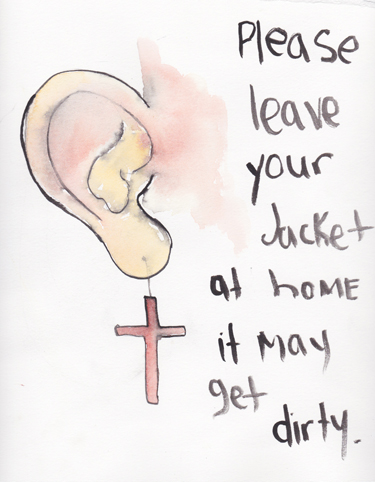 Please
leave
your
Jacket
at hOME
it may
get
dirty.